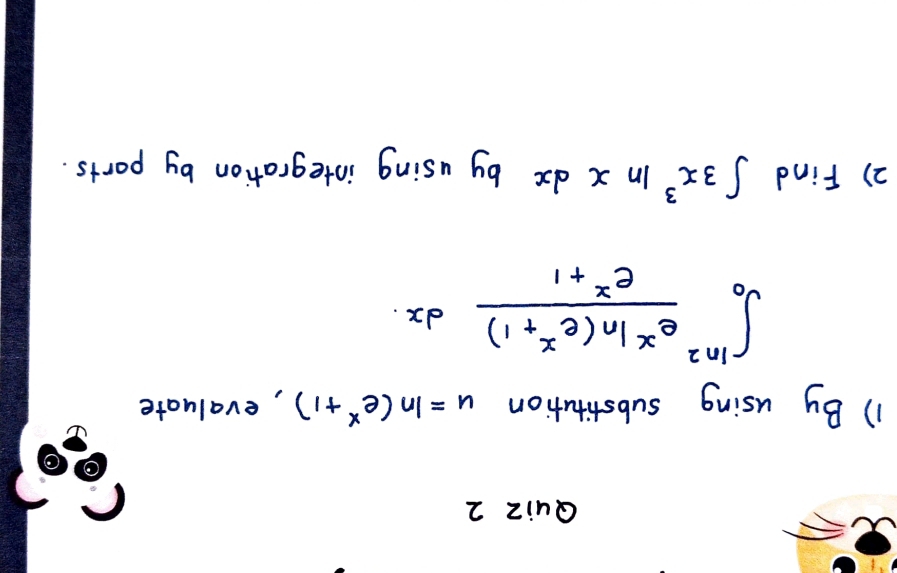 Quiz 2
1) By using substitution u = ln(eˣ+1), evaluate
∫₀^(ln 2) (eˣ ln(eˣ+1))/(eˣ+1) dx.
2) Find ∫ 3x³ ln x dx by using integration by parts.